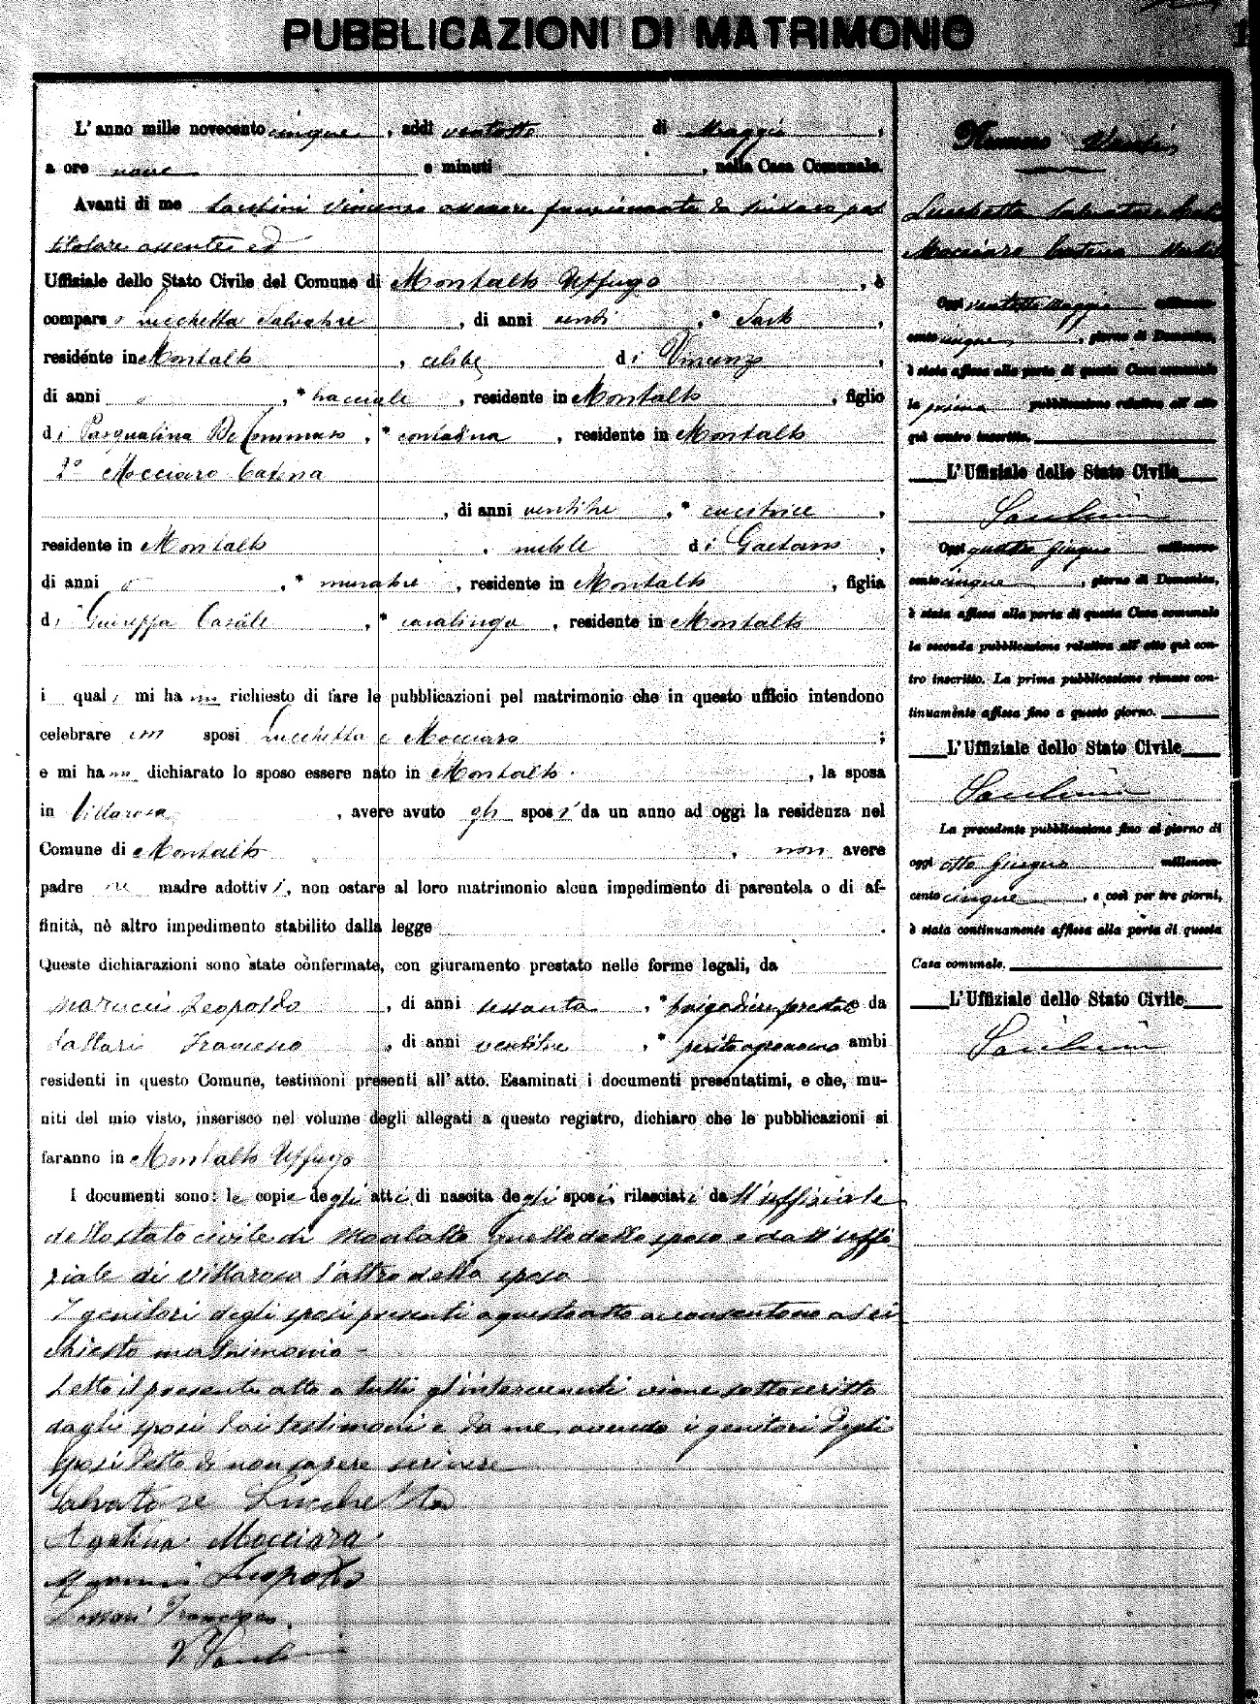 PUBBLICAZIONI DI MATRIMONIO
L'anno mille novecento cinque, addì ventotto di Maggio,
a ore nove e minuti , nella Casa Comunale.
Avanti di me Vincenzo assessore funzionante da sindaco pel
titolare assente ed
Uffiziale dello Stato Civile del Comune di Montalto Uffugo, è
compars o Lucchetta Salvatore, di anni venti, * Sarto,
residente in Montalto, celibe di Vincenzo,
di anni , * bracciale, residente in Montalto, figlio
di Pasqualina De Tommaso, * contadina, residente in Montalto
2° Mocciaro Catena
, di anni ventitre, * cucitrice,
residente in Montalto, nubile di Gaetano,
di anni , * muratore, residente in Montalto, figlia
di Giuseppa Casale, * casalinga, residente in Montalto
i quali mi hanno richiesto di fare le pubblicazioni pel matrimonio che in questo ufficio intendono
celebrare essi sposi Lucchetta e Mocciaro;
e mi hanno dichiarato lo sposo essere nato in Montalto, la sposa
in Villarosa, avere avuto gli sposi da un anno ad oggi la residenza nel
Comune di Montalto, non avere
padre ne madre adottivi, non ostare al loro matrimonio alcun impedimento di parentela o di af-
finità, nè altro impedimento stabilito dalla legge.
Queste dichiarazioni sono state confermate, con giuramento prestato nelle forme legali, da
Marucci Leopoldo, di anni sessanta, * brigadiere e da
Francesco, di anni ventitre, * perito agronomo ambi
residenti in questo Comune, testimoni presenti all'atto. Esaminati i documenti presentatimi, e che, mu-
niti del mio visto, inserisco nel volume degli allegati a questo registro, dichiaro che le pubblicazioni si
faranno in Montalto Uffugo.
I documenti sono: le copie degli atti di nascita degli sposi rilasciati dall'uffiziale
dello stato civile di Montalto quello dello sposo e dall'uffi
ziale di Villarosa l'altro della sposa
I genitori degli sposi presenti a questo atto acconsentono al ri
chiesto matrimonio -
Letto il presente atto a tutti gl'intervenuti viene sottoscritto
dagli sposi dai testimoni e da me, avendo i genitori degli
sposi detto di non sapere scrivere
Salvatore Lucchetta
Agatina Mocciara
Leopoldo
Francesco
Numero Venti
Lucchetta Salvatore
Mocciaro Catena
Oggi ventotto Maggio millenove-
cento cinque, giorno di Domenica,
è stata affissa alla porta di questa Casa comunale
la prima pubblicazione relativa all'atto
quì contro inscritto.
L'Uffiziale dello Stato Civile
Oggi quattro Giugno millenove-
cento cinque, giorno di Domenica,
è stata affissa alla porta di questa Casa comunale
la seconda pubblicazione relativa all'atto quì con-
tro inscritto. La prima pubblicazione rimase con-
tinuamente affissa fino a questo giorno.
L'Uffiziale dello Stato Civile
La precedente pubblicazione fino al giorno di
oggi otto Giugno millenove-
cento cinque, e così per tre giorni,
è stata continuamente affissa alla porta di questa
Casa comunale.
L'Uffiziale dello Stato Civile